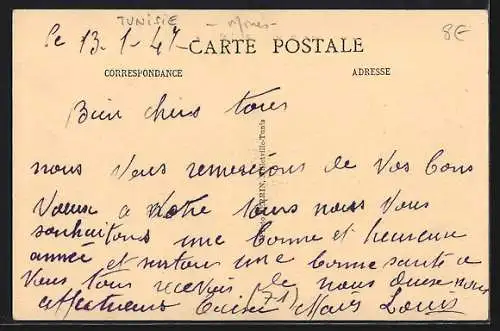 TUNISIE
8€
le 13-1-47-
CARTE POSTALE
CORRESPONDANCE
ADRESSE
Bien chers tous
nous vous remercions de vos bons
Voeux a notre tour nous vous
souhaitons une bonne et heureuse
année et surtout une bonne santé a
vous tous recevez de nous deux nos
affectueux baisers Louis